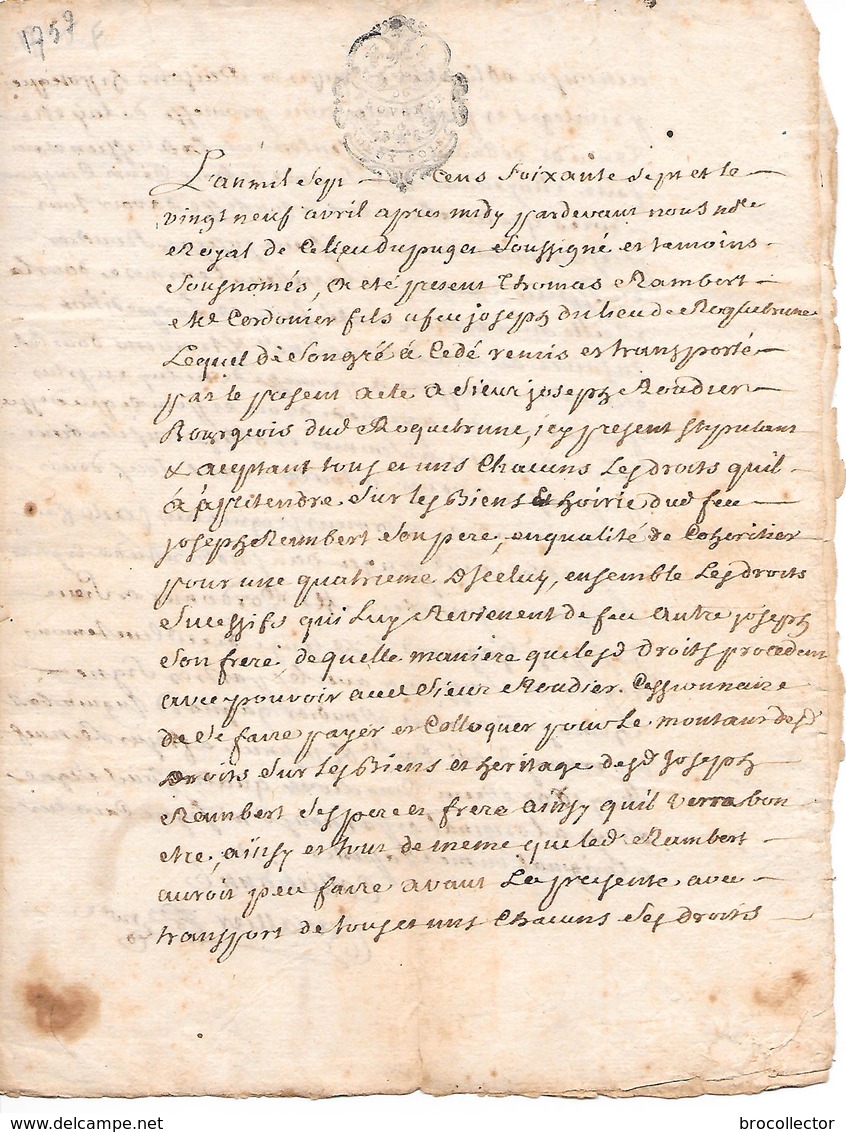 1758 F
L'an mil Sept Cens Soixante Sept et le
vingt neuf avril apres midy pardevant nous nore
Royal de Celieu du puget Soussigné et temoins
Sousnomés, a eté present Thomas Rambert
Me Cordonier fils a feu joseph du lieu de Roquebrune
Lequel de Songré à Cedé remis et transporté
par le present acte a Sieur joseph Roudier
Bourgeois dud Roquebrune, icy present stipulant
& aceptant tous et uns Chacuns Les droits quil
a à pretendre Sur les Biens & hoirie dud feu
joseph Rambert Son pere, en qualité de Coheritier
pour une quatrieme d'Iceluy, ensemble Les droits
Sucessifs qui Luy Revienent de feu autre joseph
Son frere, de quelle maniere que lesd droits procedent
avec pouvoir aud Sieur Roudier Cessionnaire
de Se faire payer et Colloquer pour Le montant desd
Droits Sur Les Biens et heritage desd Joseph
Rambert Ses pere et frere ainsy quil verra bon
etre, ainsy et tout de meme que led Rambert
auroit peu faire avant La presente avec
transport de tous et uns Chacuns Ses droits
brocollector